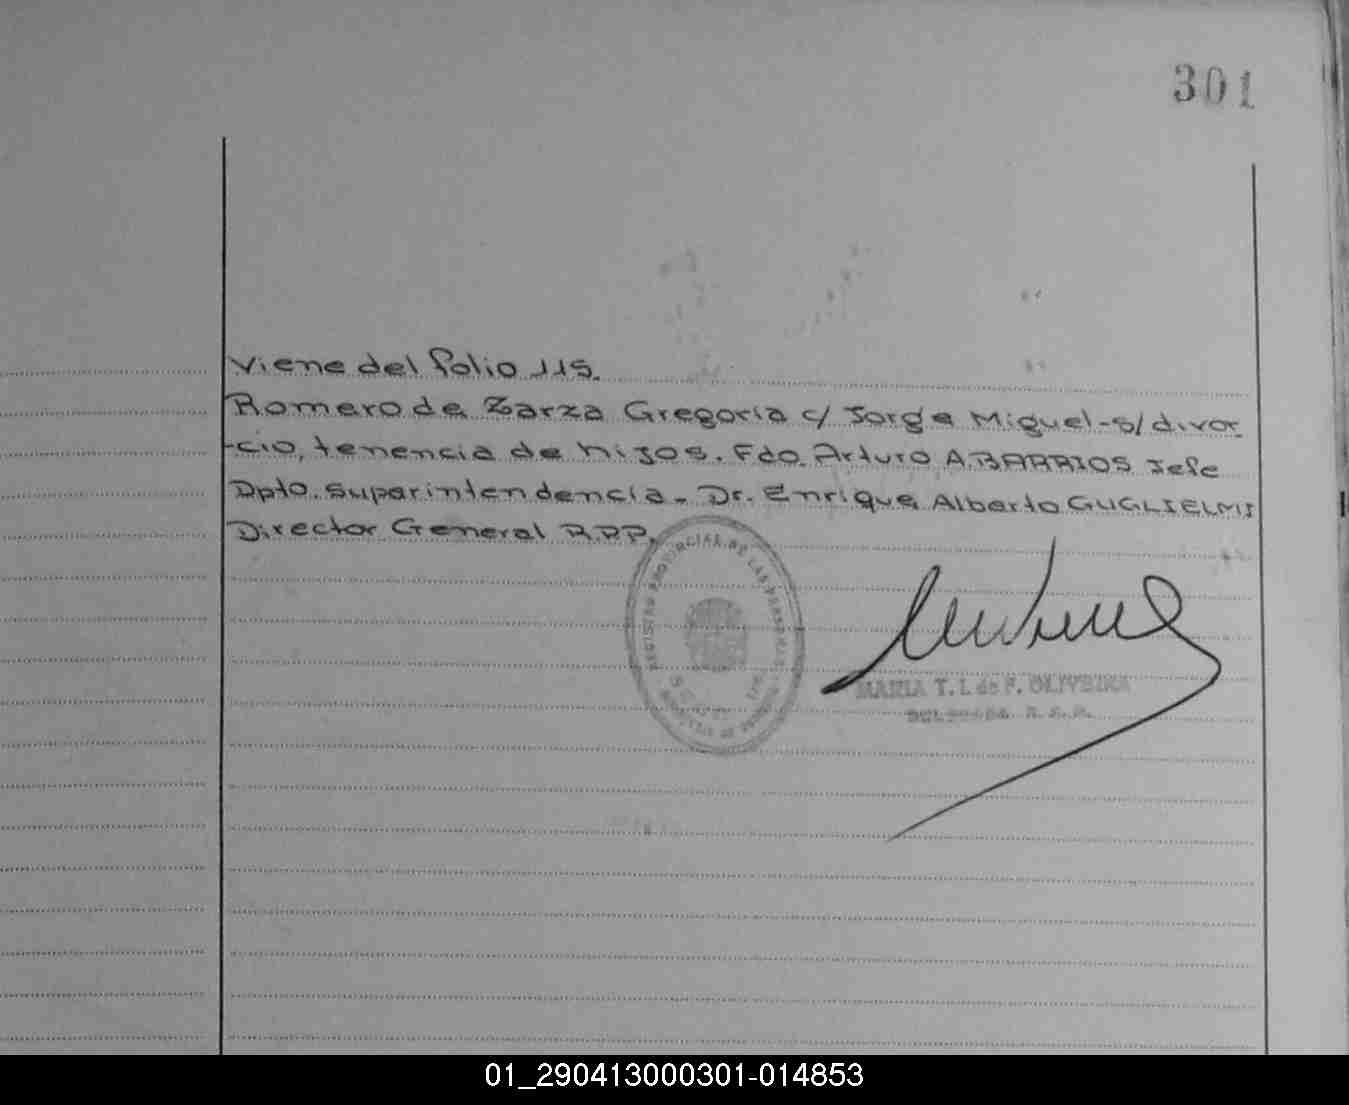 301
Viene del folio 115.
Romero de Zarza Gregoria c/ Jorge Miguel-s/divor
-cio, tenencia de hijos. Fdo. Arturo A.BARRIOS Jefe
Dpto. Superintendencia. Dr. Enrique Alberto GUGLIELMI
Director General R.P.P.
REGISTRO PROVINCIAL DE LAS PERSONAS
MARIA T. I. de F. OLIVEIRA
01_290413000301-014853